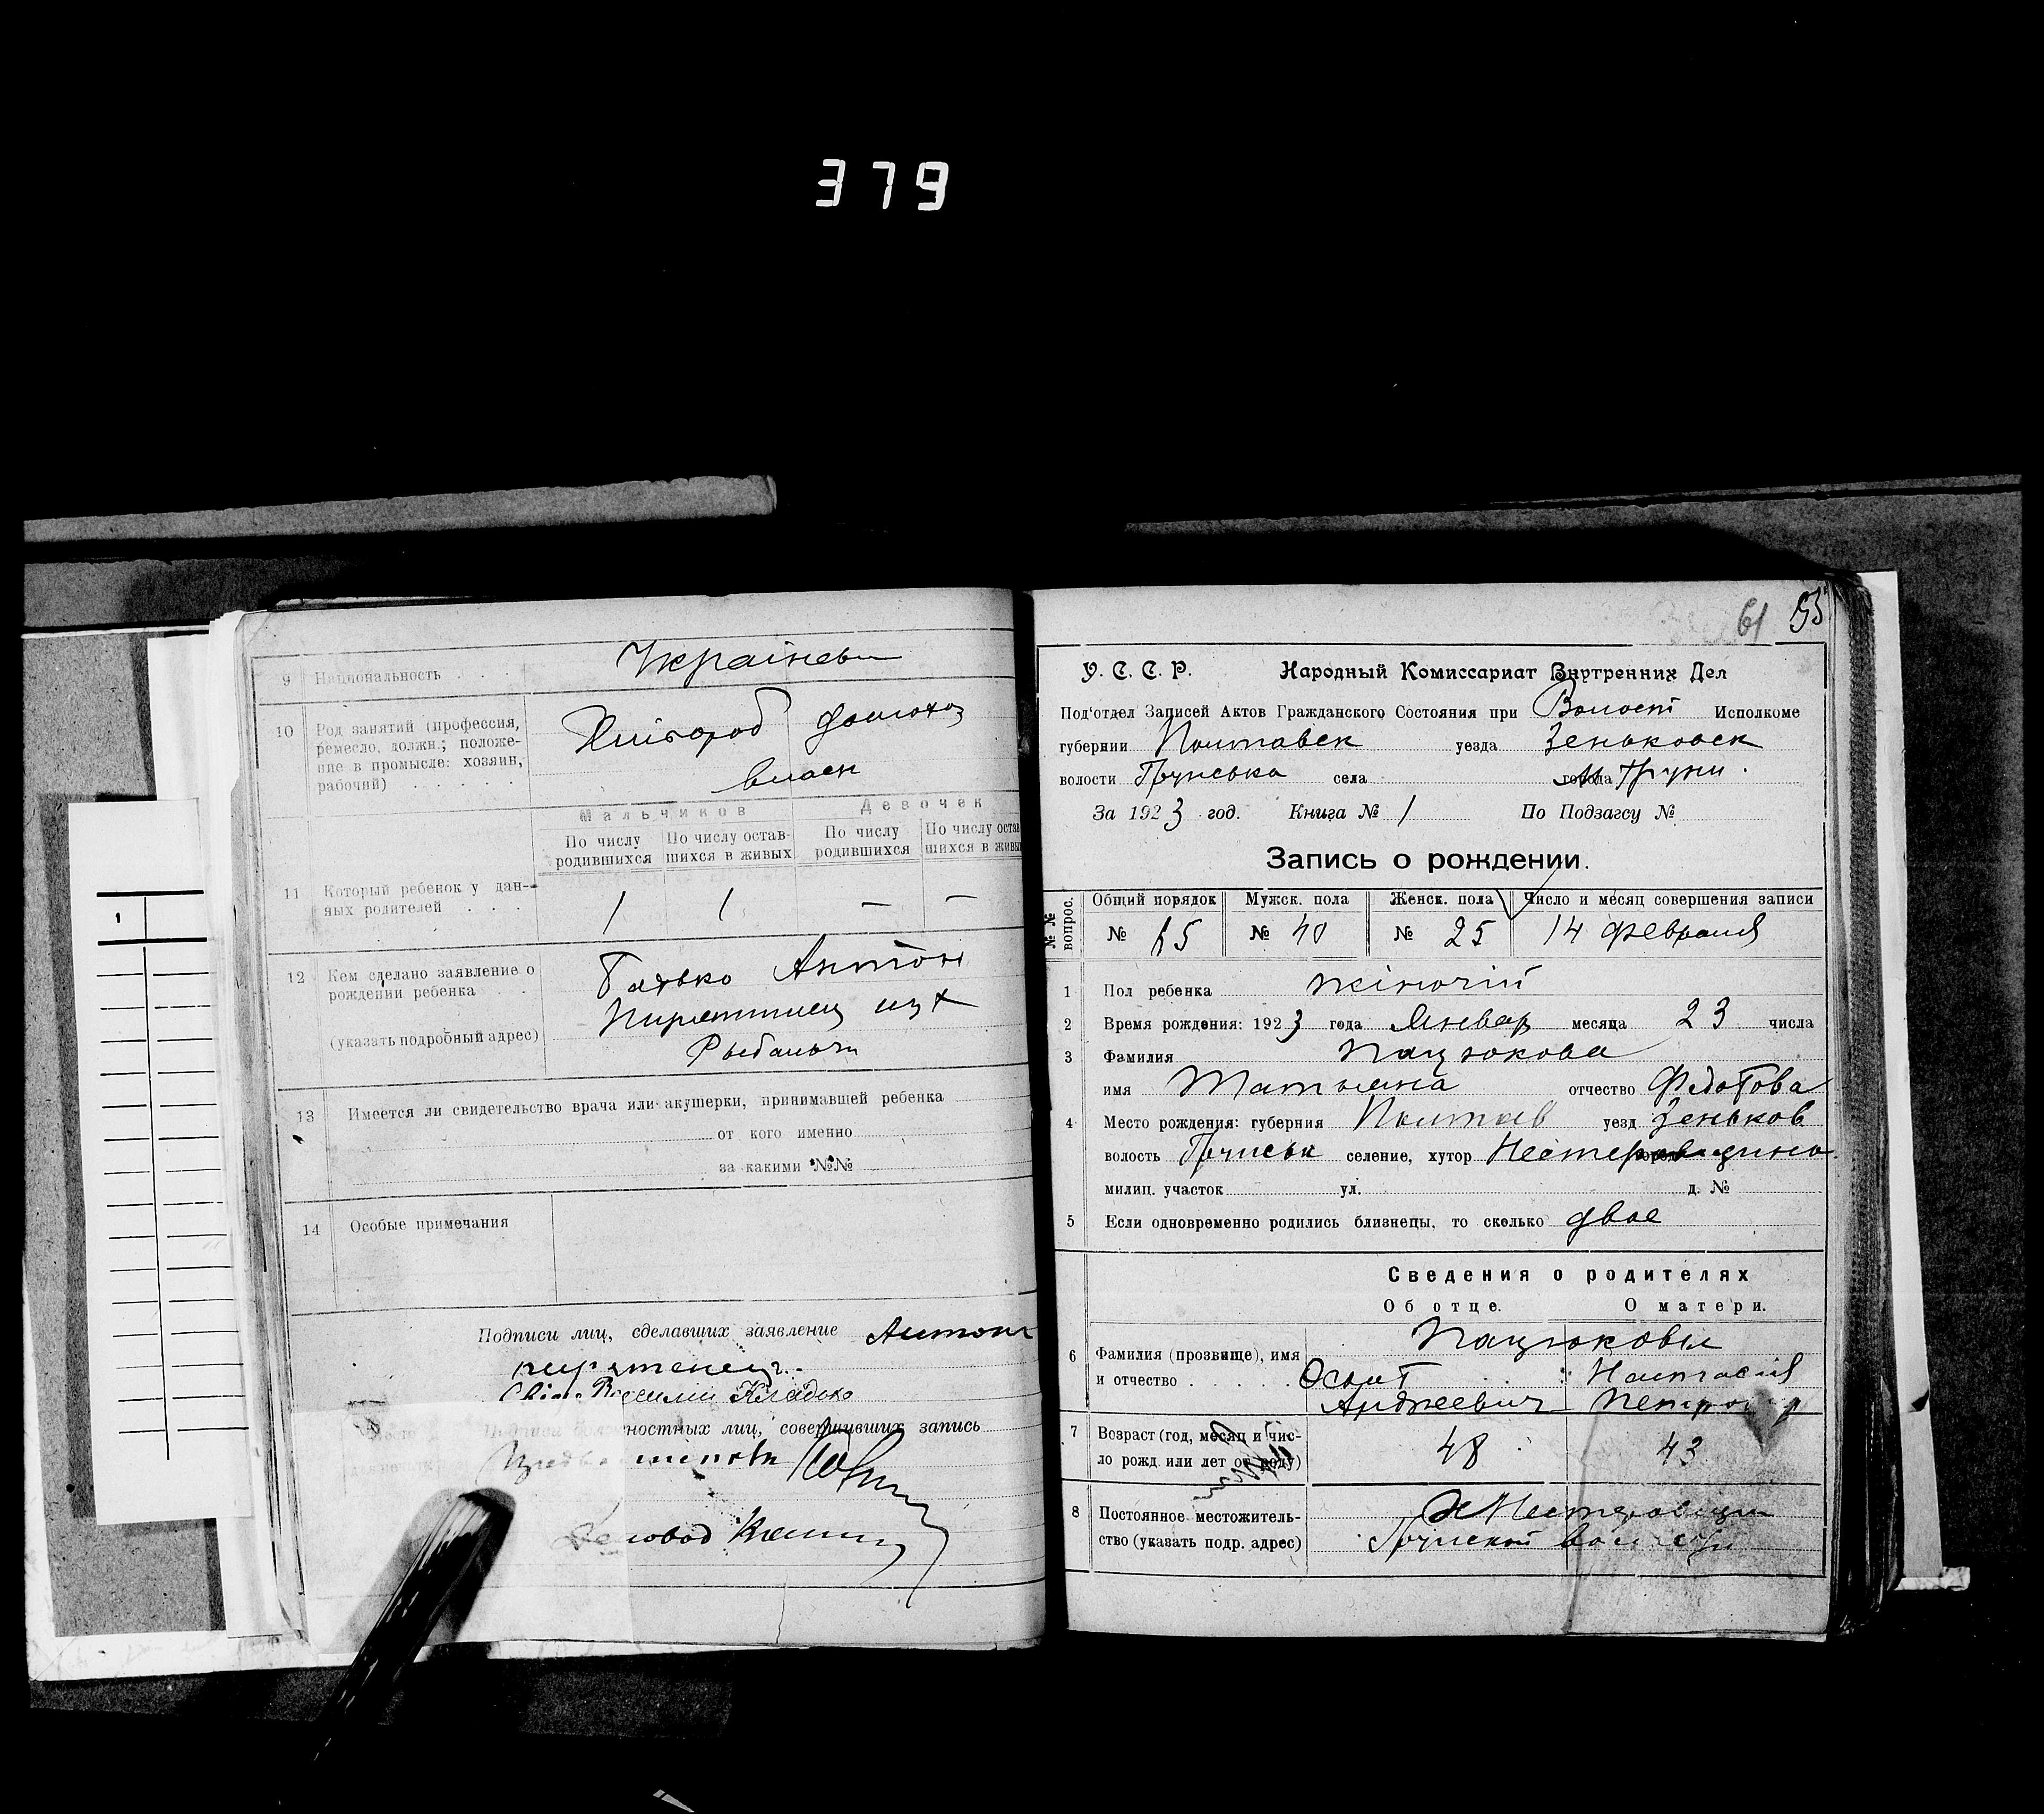 379
9 Национальность . . . Українець
10 Род занятий (профессия, ремесло, должн.; положение в промысле: хозяин, рабочий) . . . . . .
Хлібороб
власн
Мальчиков Девочек
По числу родившихся По числу оставшихся в живых По числу родившихся По числу остав шихся в живых
11 Который ребенок у данных родителей . . . 1 1 — —
12 Кем сделано заявление о рождении ребенка . .
(указать подробный адрес)
Батько Антон
из х
13 Имеется ли свидетельство врача или акушерки, принимавшей ребенка
от кого именно
за какими №№
14 Особые примечания
Подписи лиц, сделавших заявление Антон
Василий Кладько
Подписи должностных лиц, совершивших запись
Деловод
61 55
У. С. С. Р. Народный Комиссариат Внутренних Дел
Под'отдел Записей Актов Гражданского Состояния при Волост Исполкоме
губернии Полтавск уезда Зеньковск
волости Груньска села города м Груни
За 1923 год. Книга № 1 По Подзагсу №
Запись о рождении.
№№ вопрос. Общий порядок Мужск. пола Женск. пола Число и месяц совершения записи
№ 65 № 40 № 25 14 февраля
1 Пол ребенка жіночій
2 Время рождения: 1923 года Январ месяца 23 числа
3 Фамилия Пацюкова
имя Татьяна отчество Федотова
4 Место рождения: губерния Полтав уезд Зеньков
волость Груньск селение, хутор Нестеровщина
милиц. участок ул. д. №
5 Если одновременно родились близнецы, то сколько двое
Сведения о родителях
Об отце. О матери.
6 Фамилия (прозвище), имя и отчество . . . .
Пацюковы
Настасия
Андреевич Петров
7 Возраст (год, месяц и число рожд. или лет от роду) 48 43
8 Постоянное местожительство (указать подр. адрес)
х Нестеровщин
Грунской волости